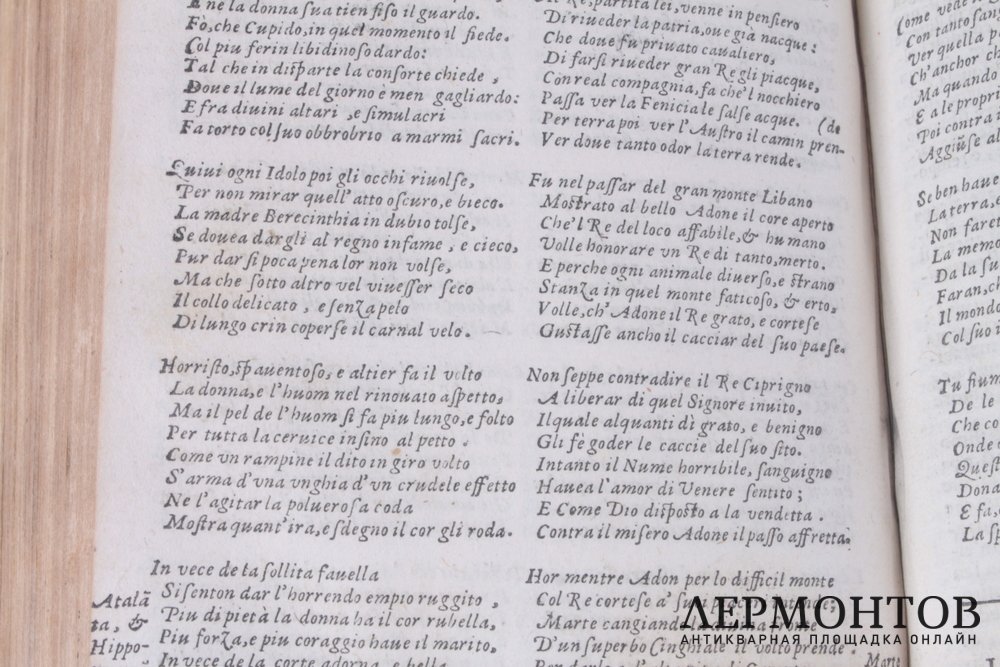 E ne la donna sua tien fiso il guardo.
Fò, che Cupido, in quel momento il fiede.
Col piu fer in libidinoso dardo:
Tal che in disparte la consorte chiede,
Doue il lume del giorno è men gagliardo:
E fra diuini altari, e simulacri
Fa torto col suo obbrobrio a marmi sacri.
Quiui ogni Idolo poi gli occhi riuolse,
Per non mirar quell'atto oscuro, e bieco.
La madre Berecinthia in dubio tolse,
Se douea dargli al regno infame, e cieco,
Pur dar si poca pena lor non volse,
Ma che sotto altro vel viuesser seco
Il collo delicato, e senza pelo
Di lungo crin coperse il carnal velo.
Horristo, spauentoso, e altier fa il volto
La donna, e l'huom nel rinouato aspetto,
Ma il pel de l'huom si fa piu lungo, e folto
Per tutta la ceruice insino al petto.
Come vn rampine il dito in giro volto
S'arma d'vna vnghia d'vn crudele effetto
Ne l'agitar la poluerosa coda
Mostra quant'ira, e sdegno il cor gli roda.
In vece de la sollita fauella
Si senton dar l'horrendo empio ruggito,
Piu di pietà la donna ha il cor rubella,
Piu forza, e piu coraggio haue il marito:
In vece de la corte adorna, e bella
Atalā
ta, &
Hippo-
Re, partita lei, venne in pensiero
Di riueder la patria, oue già nacque:
Che doue fu priuato caualiero,
Di farsi riueder gran Re gli piacque,
Con real compagnia, fa che'l nocchiero
Passa ver la Fenicia le salse acque.
Per terra poi ver l'Austro il camin pren-
(de
Ver doue tanto odor la terra rende.
Fu nel passar del gran monte Libano
Mostrato al bello Adone il core aperto
Che'l Re del loco affabile, & humano
Volle honorare vn Re di tanto, merto.
E perche ogni animale diuerso, e strano
Stanza in quel monte faticoso, & erto,
Volle, ch'Adone il Re grato, e cortese
Gustasse ancho il cacciar del suo paese.
Non seppe contradire il Re Ciprigno
A liberar di quel Signore inuito,
Il quale alquanti dì grato, e benigno
Gli fè goder le caccie del suo sito.
Intanto il Nume horribile, sanguigno
Hauea l'amor di Venere sentito;
E Come Dio disposto a la vendetta.
Contra il misero Adone il passo affretta.
Hor mentre Adon per lo difficil monte
Col Re cortese a'
Marte cangiando
D'un superbo Cinghiale il volto prende
Marte
(ome vede
Con tanto
Ver quella
Ch'anchor
Ma quando
E a le propri
Poi contra
Aggiuse al
Se ben haue
La terra, e
Non faret
La memo
Da la su
Faran, ch
Il mondo
Col suo
Tu fium
De le
Che co
Onde
Quest
Dona
E fa,
La sp
ЛЕРМОНТОВ
АНТИКВАРНАЯ ПЛОЩАДКА ОНЛАЙН